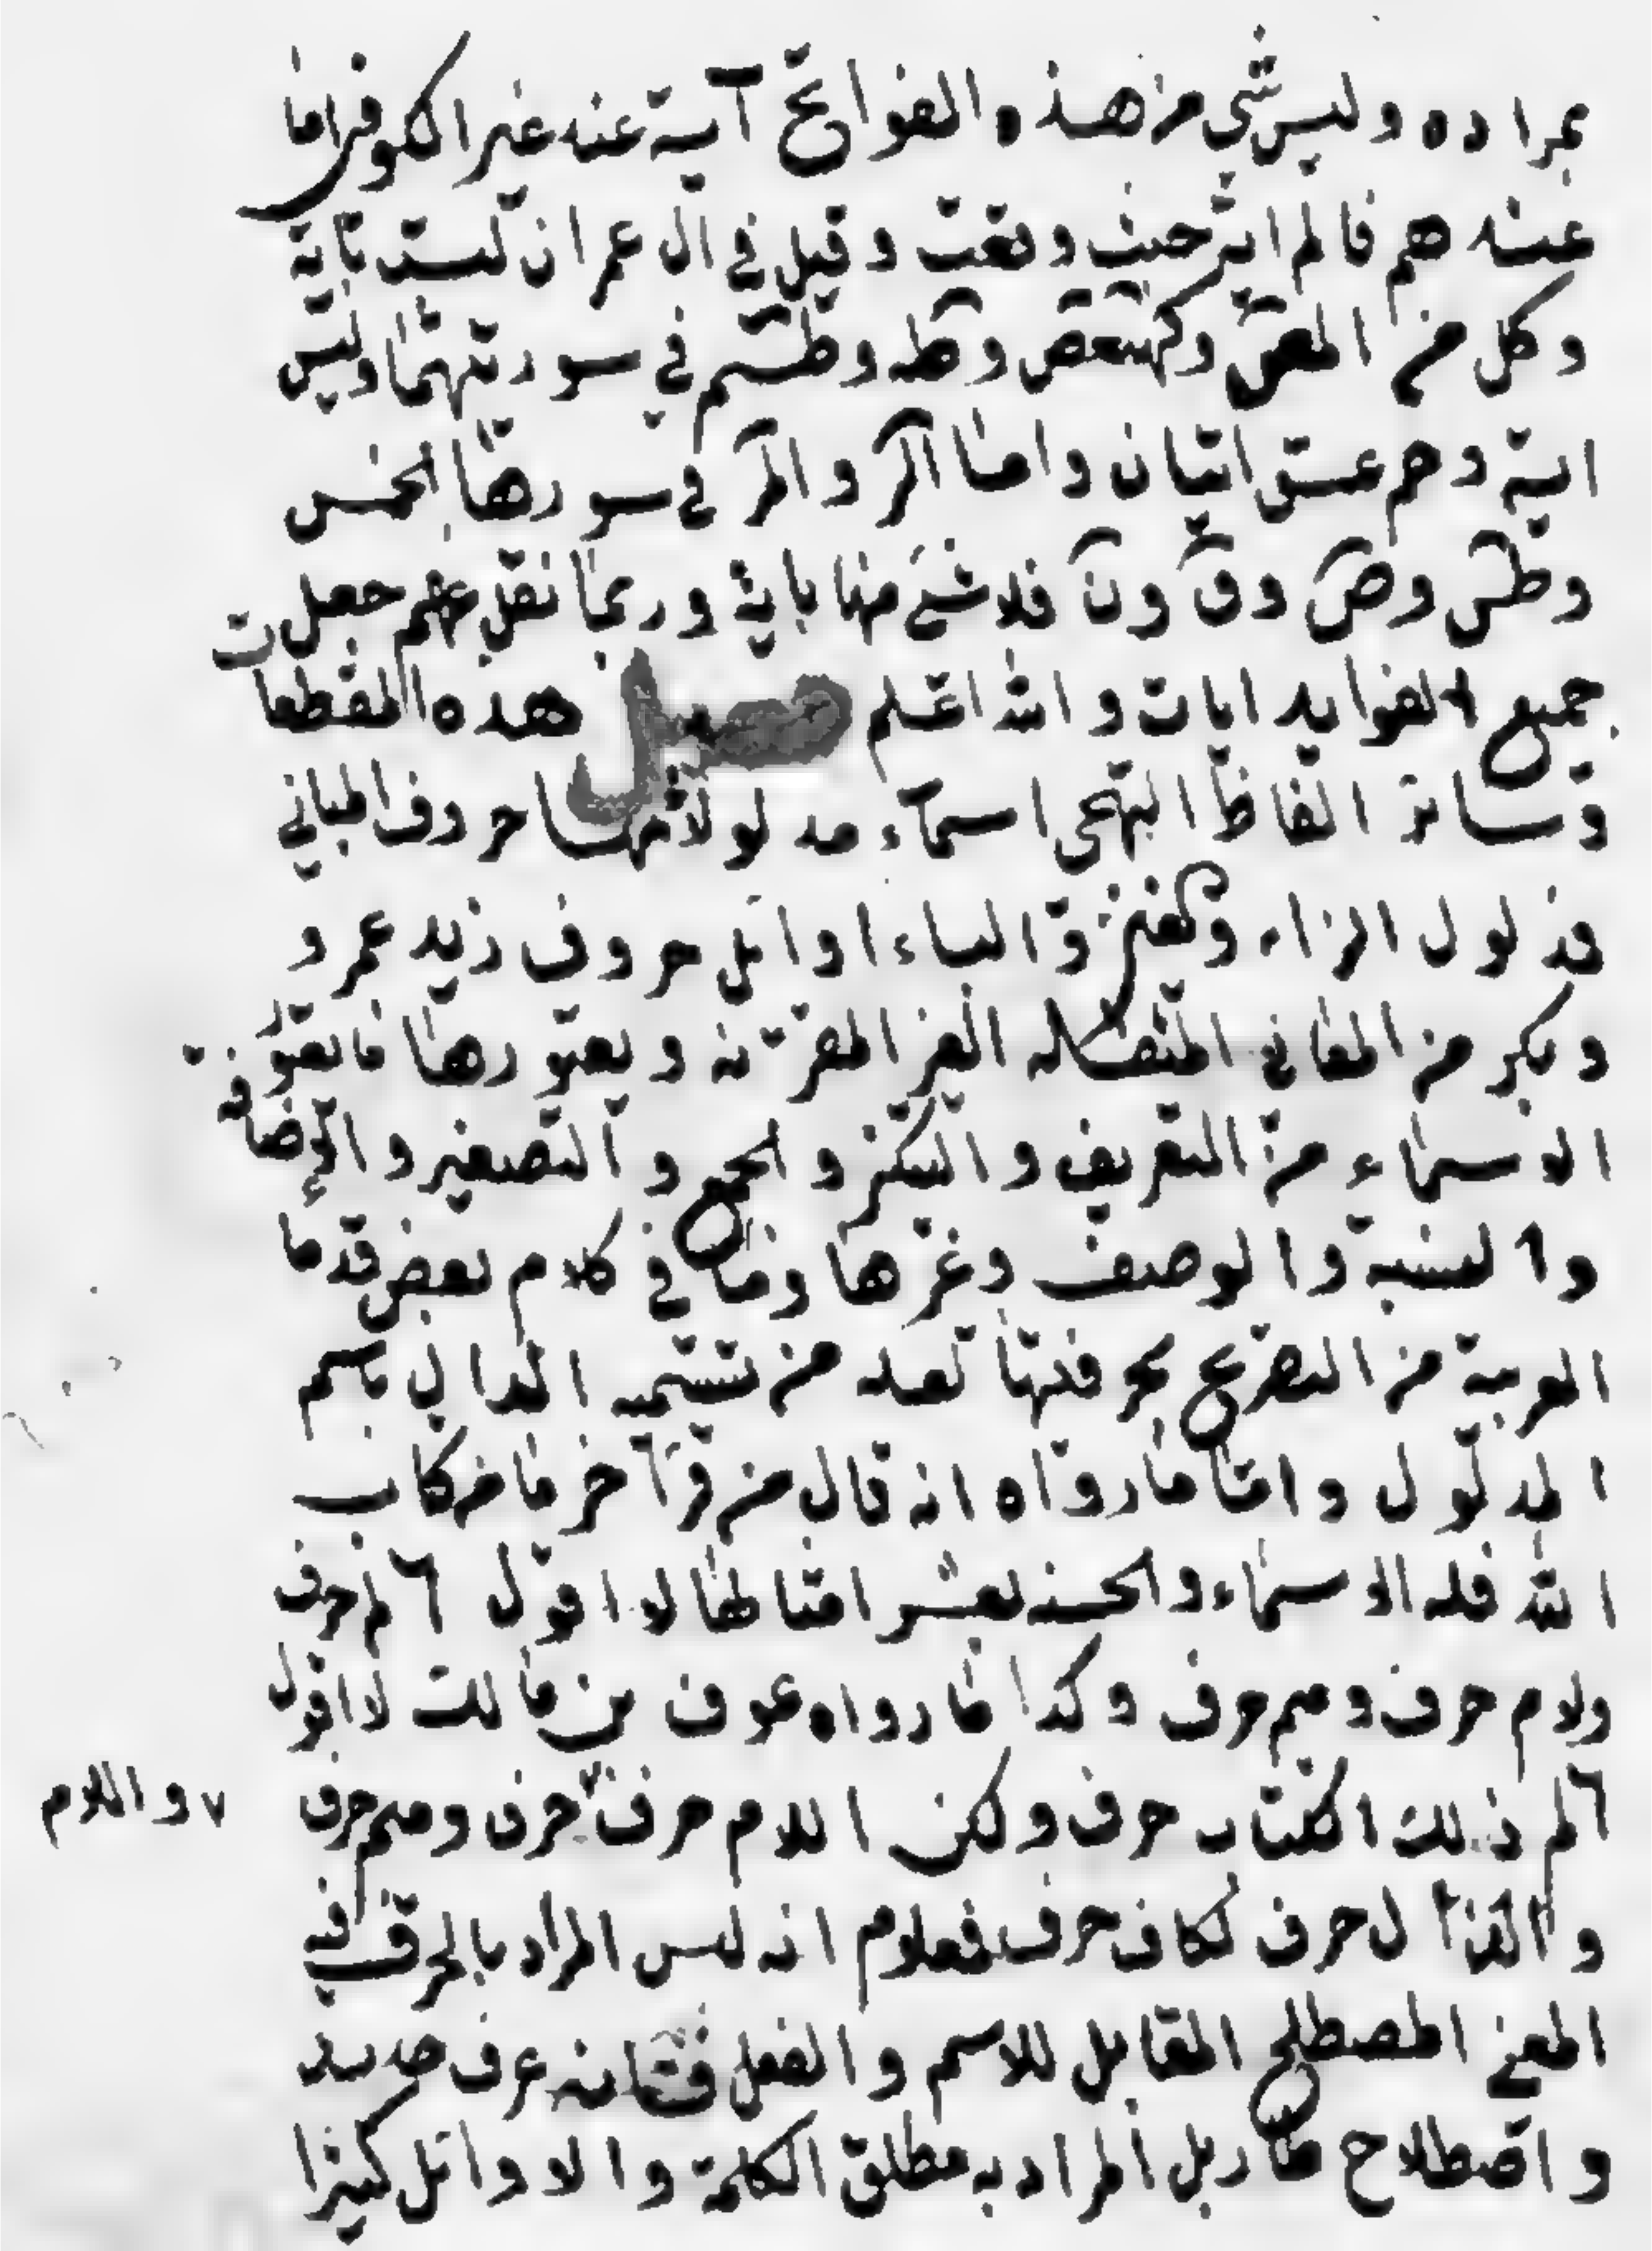 بمراده وليس شي من هذه الفواتح آية عنه غير الكوفي اما
عنه هم فالم اية حيث وقعت وقيل في ال عمران ليست باية
وكل من المص وكهيعص وطه وطسم في سورتهما ويس
اية وحم عسق ايتان واما الر والمر في سورها الخمس
وطس وص وق ون فلا شي منها باية وربما نقل عنهم جعل
جميع الفوايد ايات والله اعلم فصل هذه المقطعات
وسائر الفاظ التهجي اسماء مدلولاتها حروف المباني
فمدلول الزاء والباء اوائل حروف زيد عمرو
وبكر من المعاني الغير المقترنة ويعتورها ما يعتور
الاسماء من التعريف والتنكير والجمع والتصغير والاضافة
والنسبة والوصف وغيرها وما في كلام بعض قدما
العربية من التصريح بحرفيتها تعد من تسمية الدال باسم
المدلول واما ما رواه انه قال من قرآ حرفا من كتاب
الله فله الاسماء والحسنه بعشر امثالها لا اقول الم حرف
ولام حرف وميم حرف وكذا ما رواه عوف بن مالك لا اقول
الم ذلك الكتاب حرف ولكن اللام حرف حرف وميم حرف
٧ واللام
والذال حرف لكاف حرف فعلوم انه ليس المراد بالحرف فيه
المعنى المصطلح المقابل للاسم والفعل فانه عرف جديد
واصطلاح طار بل المراد به مطلق الكلمة والاوائل كثيرا